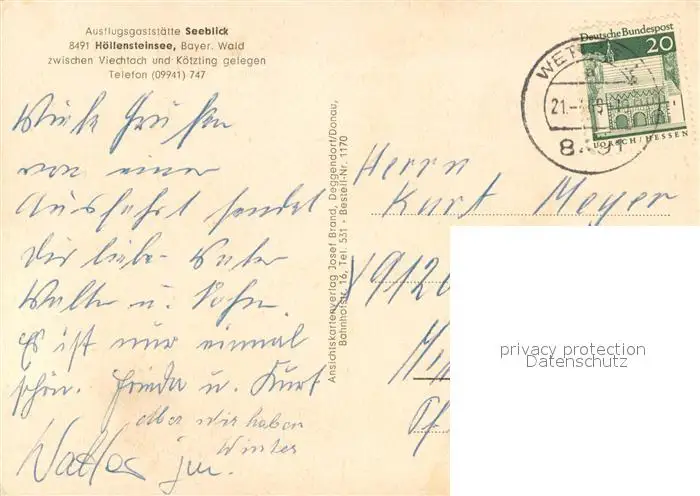 Ausflugsgaststätte Seeblick
8491 Höllensteinsee, Bayer. Wald
zwischen Viechtach und Kötzting gelegen
Telefon (09941) 747
Viele Grüße
von einer
Ausfahrt sendet
Dir liebe
Walter u.
Es ist nur einmal
schön. Frieda u. Kurt
aber wir haben
Winter
jun.
Ansichtskartenverlag Josef Brand, Deggendorf/Donau,
Bahnhofstr. 16, Tel. 531 - Bestell-Nr. 1170
Deutsche Bundespost
20
LORSCH/HESSEN
WET
21.
8491
Herrn
Kurt Meyer
privacy protection
Datenschutz